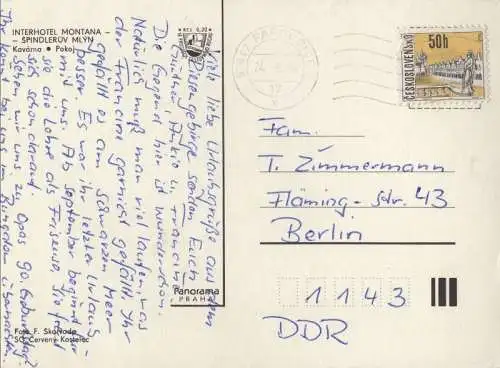 INTERHOTEL MONTANA -
- ŠPINDLERŮV MLÝN
Kavárna ● Pokoj
KČS 0,30
Viele liebe Urlaubsgrüße aus dem
Riesengebirge senden Euch
Günther, Ankie u. Francine.
Die Gegend hier ist wunderschön.
Natürlich muß man viel laufen, was
der Francine garnicht gefällt. Ihr
gefällt es am Schwarzen Meer
besser. Es war ihr letzter Urlaub
mit uns. Ab September beginnt für
sie die Lehre als Friseuse. Sie freut
sich schon darauf.
Sehen wir uns zu Opas 90. Geburtstag?
Ihr könnt bei uns im Bungalow
Panorama
PRAHA
Foto F. Skořvada
SČ Červený Kostelec
ČESKOSLOVENSKO
50h
Fam.
T. Zimmermann
Fläming-Str. 43
Berlin
1143
DDR